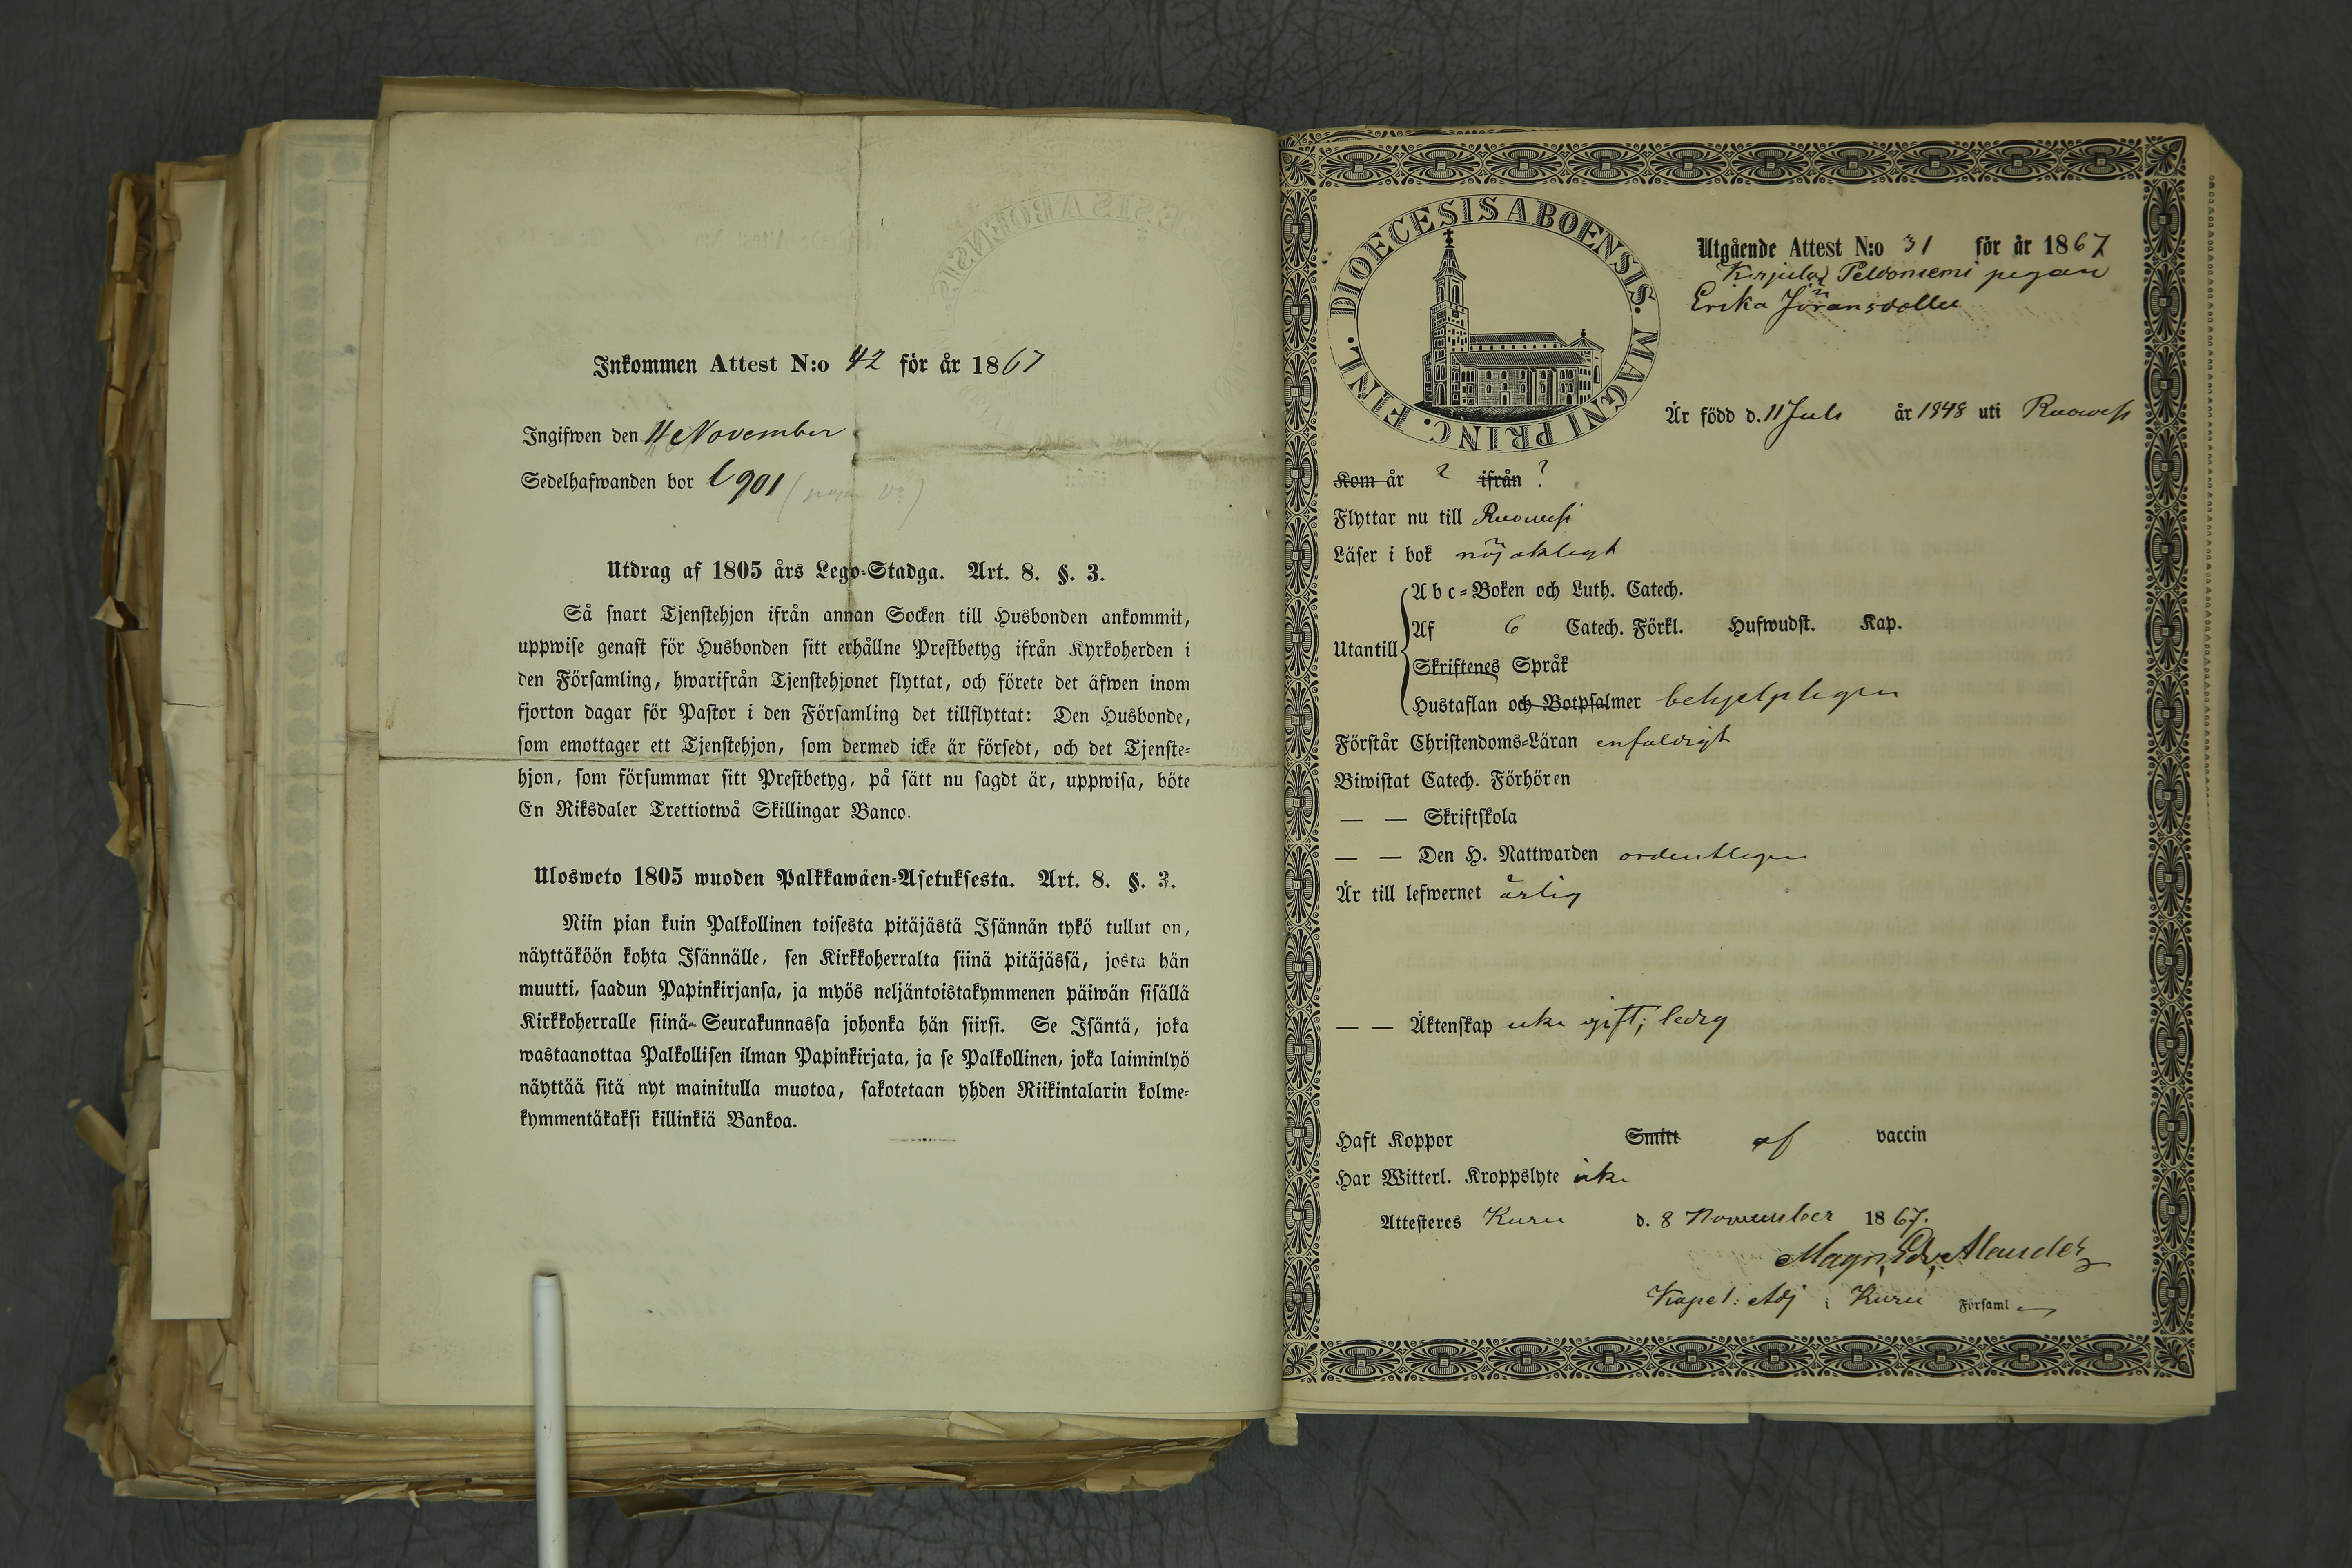 Inkommen Attest N:o 42 för år 1867
Ingifwen den 11 November
Sedelhafwanden bor l 901
Utdrag af 1805 års Lego-Stadga. Art. 8. §. 3.
Så snart Tjenstehjon ifrån annan Socken till Husbonden ankommit,
uppwise genast för Husbonden sitt erhållne Prestbetyg ifrån Kyrkoherden i
den Församling, hwarifrån Tjenstehjonet flyttat, och förete det äfwen inom
fjorton dagar för Pastor i den Församling det tillflyttat: Den Husbonde,
som emottager ett Tjenstehjon, som dermed icke är försedt, och det Tjenste-
hjon, som försummar sitt Prestbetyg, på sätt nu sagdt är, uppwisa, böte
En Riksdaler Trettiotwå Skillingar Banco.
Ulosweto 1805 wuoden Palkkawäen-Asetuksesta. Art. 8. §. 3.
Niin pian kuin Palkollinen toisesta pitäjästä Isännän tykö tullut on,
näyttäköön kohta Isännälle, sen Kirkkoherralta siinä pitäjässä, josta hän
muutti, saadun Papinkirjansa, ja myös neljäntoistakymmenen päiwän sisällä
Kirkkoherralle siinä Seurakunnassa johonka hän siirsi. Se Isäntä, joka
wastaanottaa Palkollisen ilman Papinkirjata, ja se Palkollinen, joka laiminlyö
näyttää sitä nyt mainitulla muotoa, sakotetaan yhden Riikintalarin kolme-
kymmentäkaksi killinkiä Bankoa.
DIOECESIS ABOENSIS. MAGNI PRINC. FINL.
Utgående Attest N:o 31 för år 1867
Peldoniemi pigan
Erika Jöransdotter
Är född d. 11 Juli år 1848 uti Ruowesi
Kom år ? ifrån ?
Flyttar nu till Ruowesi
Läser i bok nöjaktligt
Abc-Boken och Luth. Catech.
Utantill Af 6 Catech. Förkl. Hufwudst. Kap.
Skriftenes Språk
Hustaflan och Botpsalmer behjelpligen
Förstår Christendoms-Läran enfaldigt
Biwistat Catech. Förhören
— — Skriftskola
— — Den H. Nattwarden ordentligen
Är till lefwernet ärlig
— — Äktenskap icke gift; ledig
Haft Koppor Smitt af vaccin
Har Witterl. Kroppslyte icke
Attesteres Kuru d. 8 November 1867.
Magn. Edv. Alander
Kapel: Adj i Kuru Församl